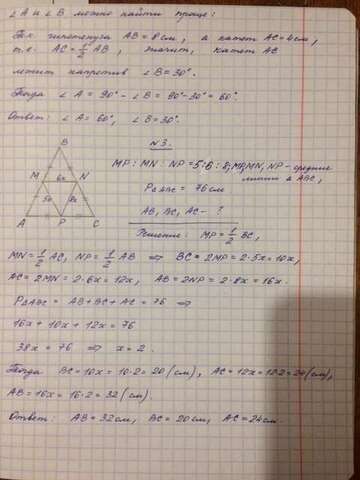 ∠A и ∠B можно найти проще:
Так гипотенуза AB = 8 см, а катет AC = 4 см,
т.е. AC = 1/2 AB, значит, катет AC
лежит напротив ∠B = 30°.
Тогда ∠A = 90° - ∠B = 90° - 30° = 60°.
Ответ: ∠A = 60°, ∠B = 30°.
N3.
MP : MN : NP = 5 : 6 : 8, MP, MN, NP - средние
линии △ ABC,
P△ABC = 76 см
AB, BC, AC - ?
Решение: MP = 1/2 BC,
B
M 6x N
5x 8x
A P C
MN = 1/2 AC, NP = 1/2 AB ⇒ BC = 2MP = 2·5x = 10x,
AC = 2MN = 2·6x = 12x, AB = 2NP = 2·8x = 16x.
P△ABC = AB + BC + AC = 76 ⇒
16x + 10x + 12x = 76
38x = 76 ⇒ x = 2.
Тогда BC = 10x = 10·2 = 20 (см), AC = 12x = 12·2 = 24 (см),
AB = 16x = 16·2 = 32 (см).
Ответ: AB = 32 см, BC = 20 см, AC = 24 см.